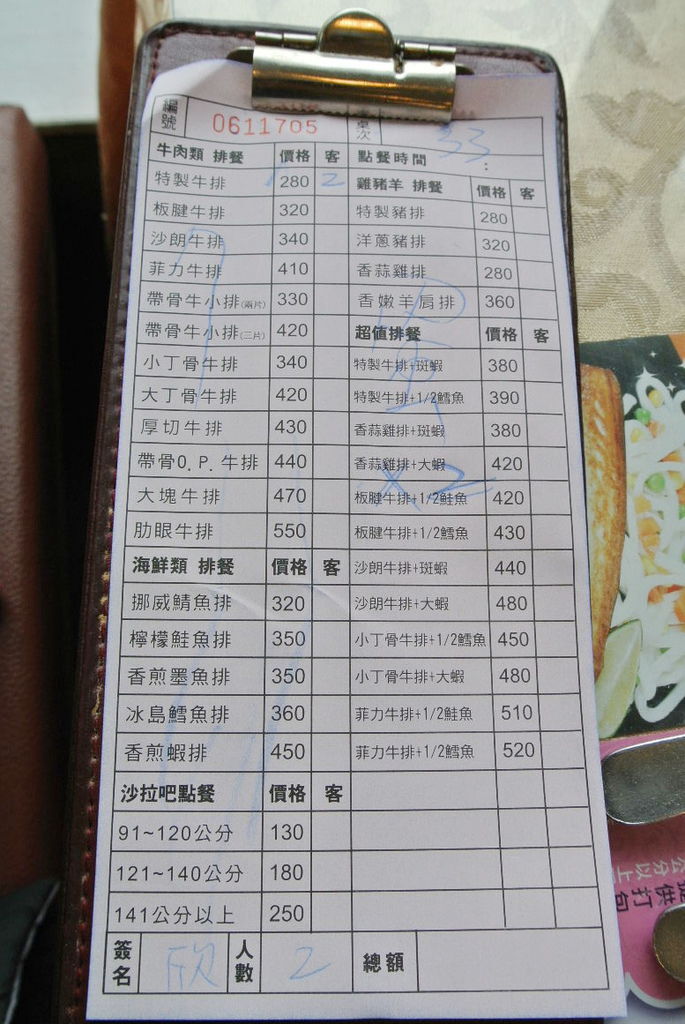 編號 0611705 桌次 33
牛肉類 排餐 價格 客 點餐時間 :
特製牛排 280 2
板腱牛排 320
沙朗牛排 340
菲力牛排 410
帶骨牛小排(兩片) 330
帶骨牛小排(三片) 420
小丁骨牛排 340
大丁骨牛排 420
厚切牛排 430
帶骨O.P.牛排 440
大塊牛排 470
肋眼牛排 550
海鮮類 排餐 價格 客
挪威鯖魚排 320
檸檬鮭魚排 350
香煎墨魚排 350
冰島鱈魚排 360
香煎蝦排 450
沙拉吧點餐 價格 客
91~120公分 130
121~140公分 180
141公分以上 250
雞豬羊 排餐 價格 客
特製豬排 280
洋蔥豬排 320
香蒜雞排 280
香嫩羊肩排 360
超值排餐 價格 客
特製牛排+斑蝦 380
特製牛排+1/2鱈魚 390
香蒜雞排+斑蝦 380
香蒜雞排+大蝦 420
板腱牛排+1/2鮭魚 420
板腱牛排+1/2鱈魚 430
沙朗牛排+斑蝦 440
沙朗牛排+大蝦 480
小丁骨牛排+1/2鱈魚 450
小丁骨牛排+大蝦 480
菲力牛排+1/2鮭魚 510
菲力牛排+1/2鱈魚 520
x2
簽名 欣 人數 2 總額
公分以上
提供打包